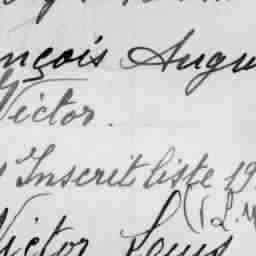 nçois Augu
Victor.
Inscrit liste 19
(12.
Victor Louis